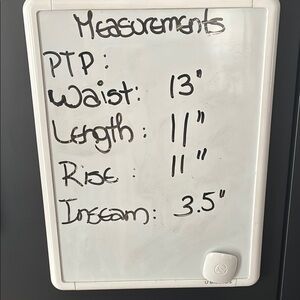 Measurements
PTP:
Waist: 13"
Length: 11"
Rise: 11"
Inseam: 3.5"